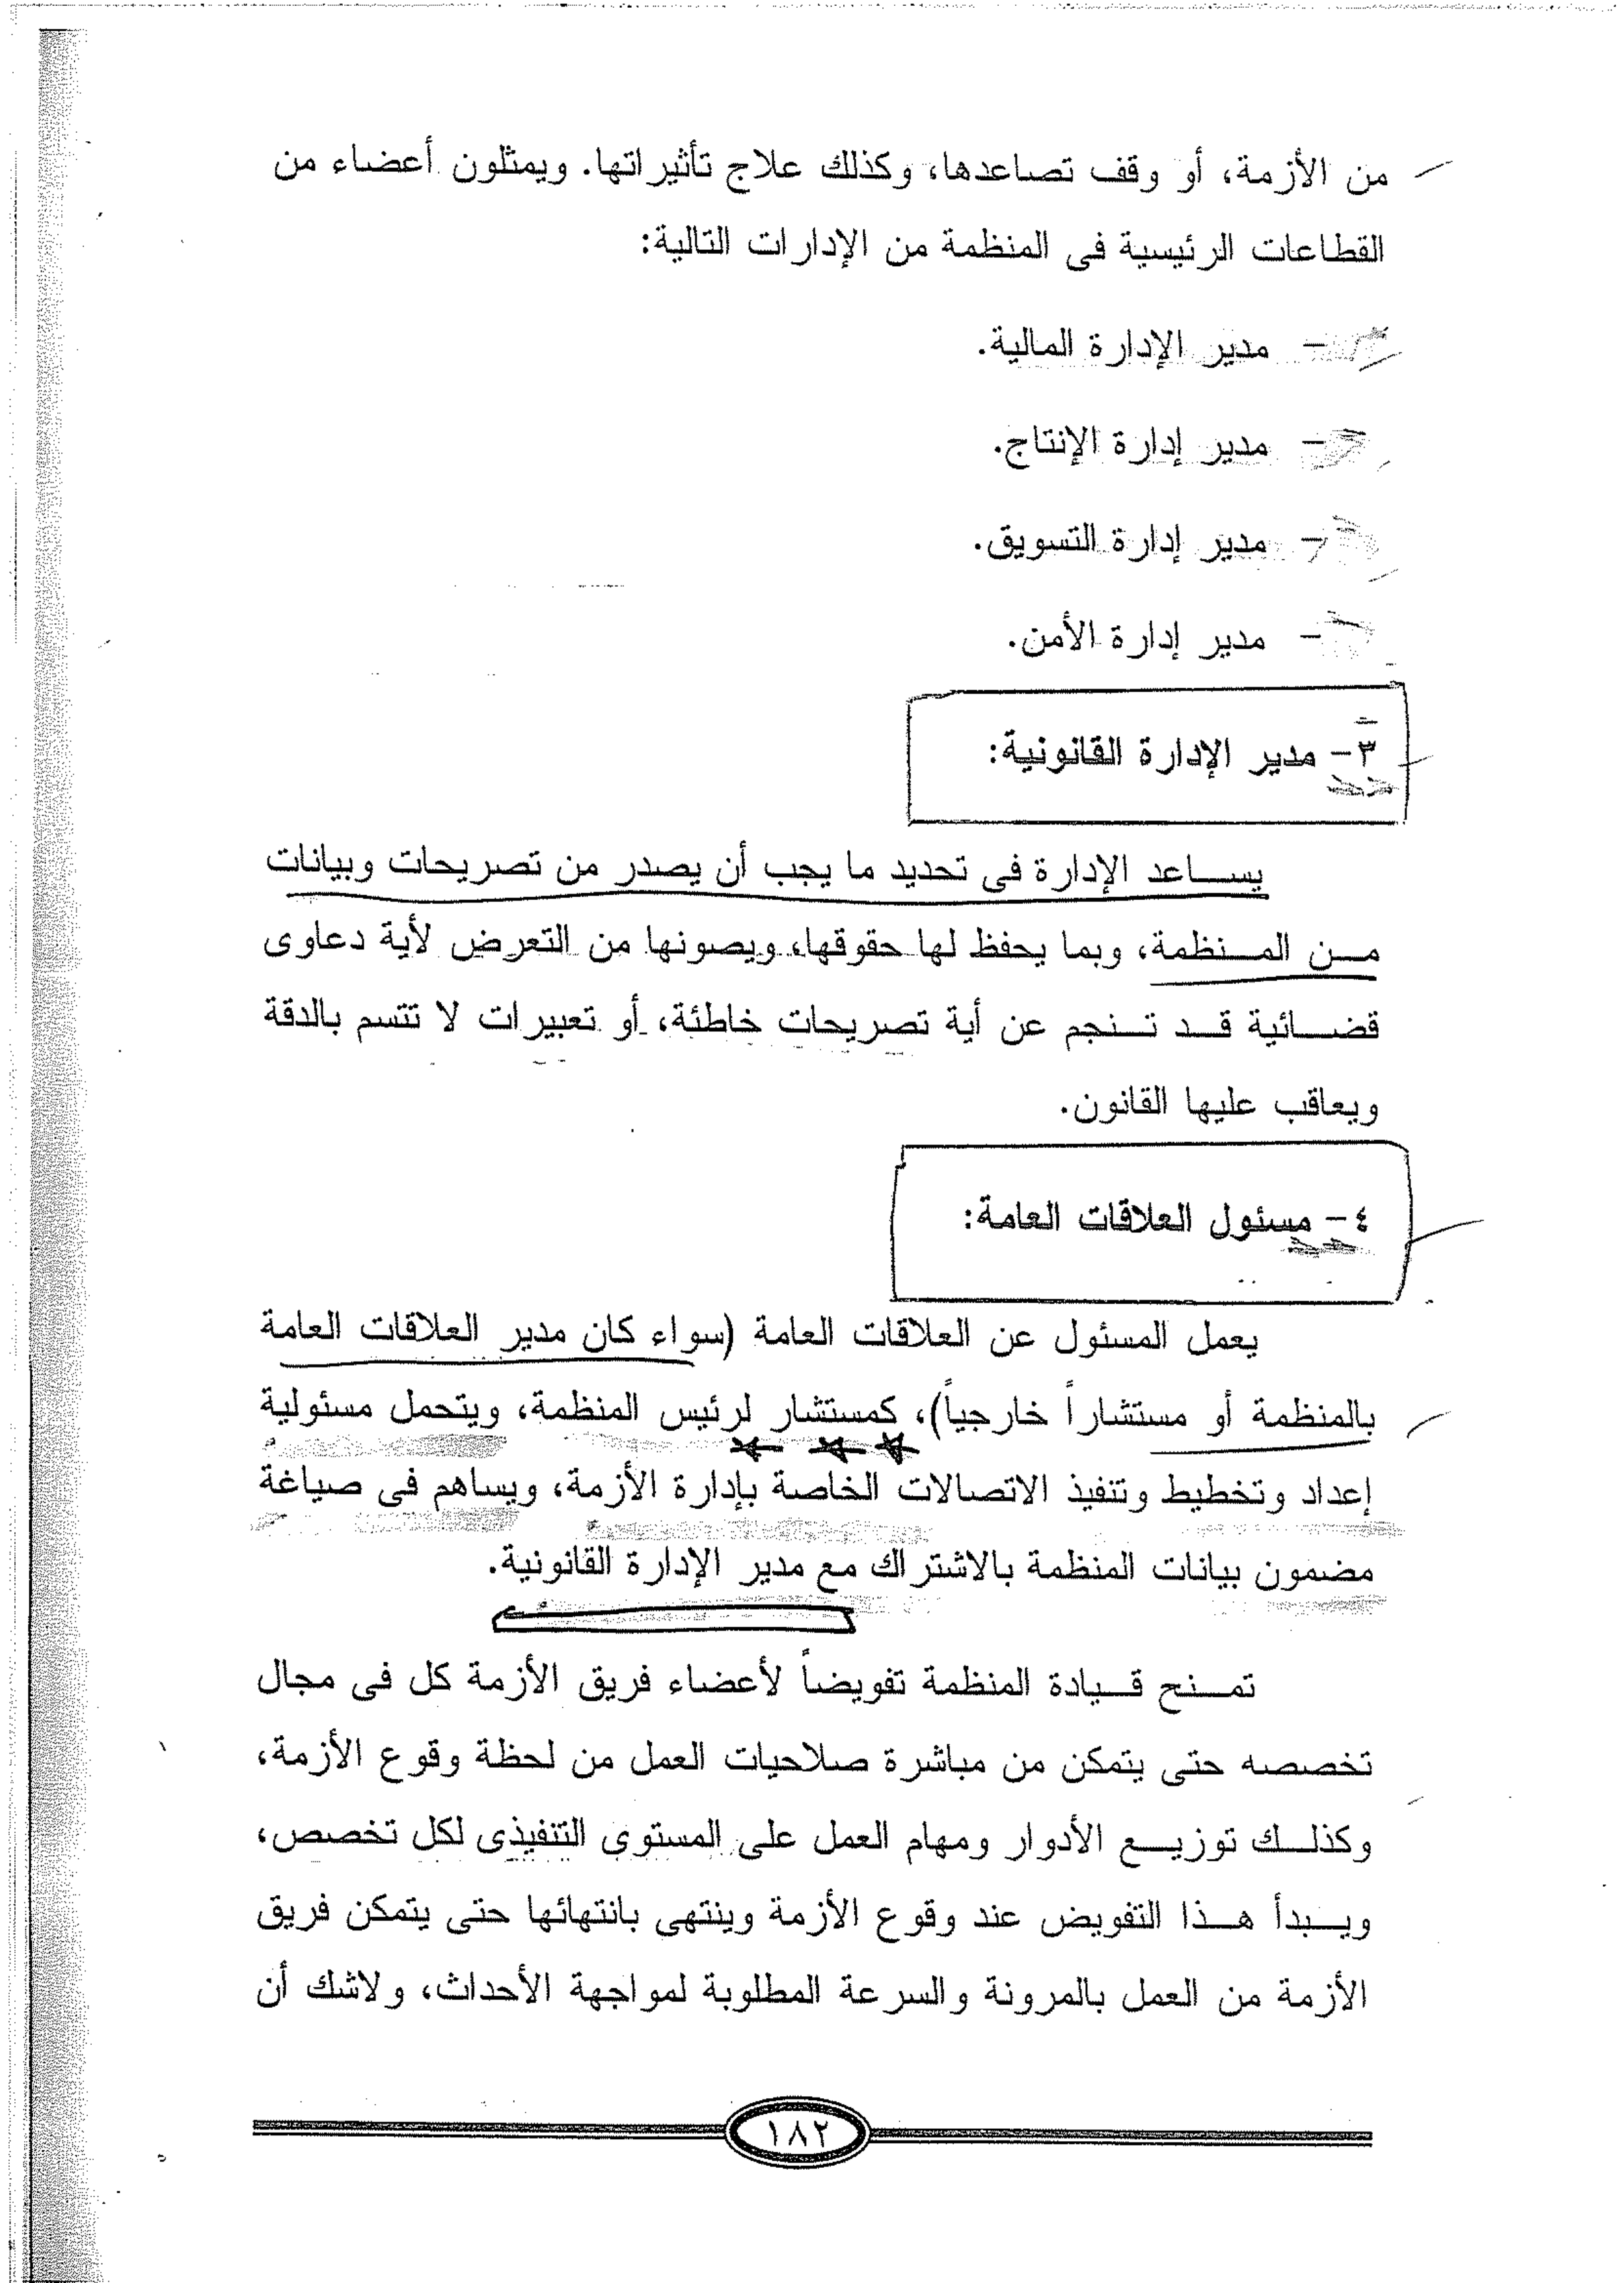 من الأزمة، أو وقف تصاعدها، وكذلك علاج تأثيراتها. ويمثلون أعضاء من
القطاعات الرئيسية فى المنظمة من الإدارات التالية:
- مدير الإدارة المالية.
- مدير إدارة الإنتاج.
- مدير إدارة التسويق.
- مدير إدارة الأمن.
٣- مدير الإدارة القانونية:
يساعد الإدارة فى تحديد ما يجب أن يصدر من تصريحات وبيانات
من المنظمة، وبما يحفظ لها حقوقها، ويصونها من التعرض لأية دعاوى
قضائية قد تنجم عن أية تصريحات خاطئة، أو تعبيرات لا تتسم بالدقة
ويعاقب عليها القانون.
٤- مسئول العلاقات العامة:
يعمل المسئول عن العلاقات العامة (سواء كان مدير العلاقات العامة
بالمنظمة أو مستشاراً خارجياً)، كمستشار لرئيس المنظمة، ويتحمل مسئولية
إعداد وتخطيط وتنفيذ الاتصالات الخاصة بإدارة الأزمة، ويساهم فى صياغة
مضمون بيانات المنظمة بالاشتراك مع مدير الإدارة القانونية.
تمنح قيادة المنظمة تفويضاً لأعضاء فريق الأزمة كل فى مجال
تخصصه حتى يتمكن من مباشرة صلاحيات العمل من لحظة وقوع الأزمة،
وكذلك توزيع الأدوار ومهام العمل على المستوى التنفيذى لكل تخصص،
ويبدأ هذا التفويض عند وقوع الأزمة وينتهى بانتهائها حتى يتمكن فريق
الأزمة من العمل بالمرونة والسرعة المطلوبة لمواجهة الأحداث، ولاشك أن
١٨٢